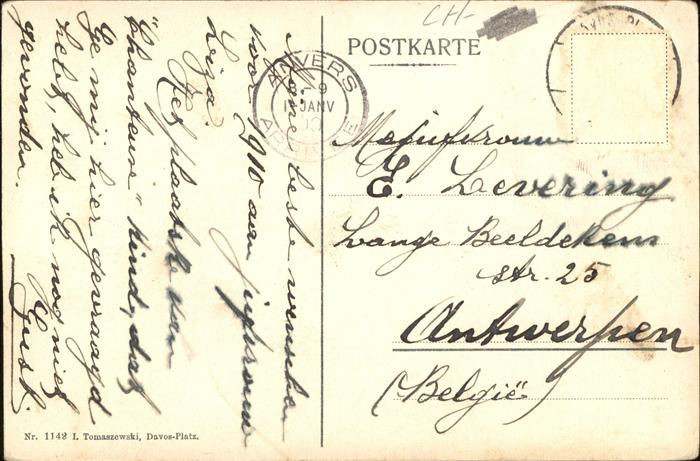 CH-
POSTKARTE
ANVERS
9
JANV
Mejufvrouw
E. Levering
Lange Beeldekens
str. 25
Antwerpen
(België)
Mijne beste wenschen
voor 1910 aan
Liza.
Het plaatske van
"Chanteuse" kind, dat
Ge mij hier gevraagd
hebt, heb ik nog niet
gevonden.
Gust.
Nr. 1142 I. Tomaszewski, Davos-Platz.